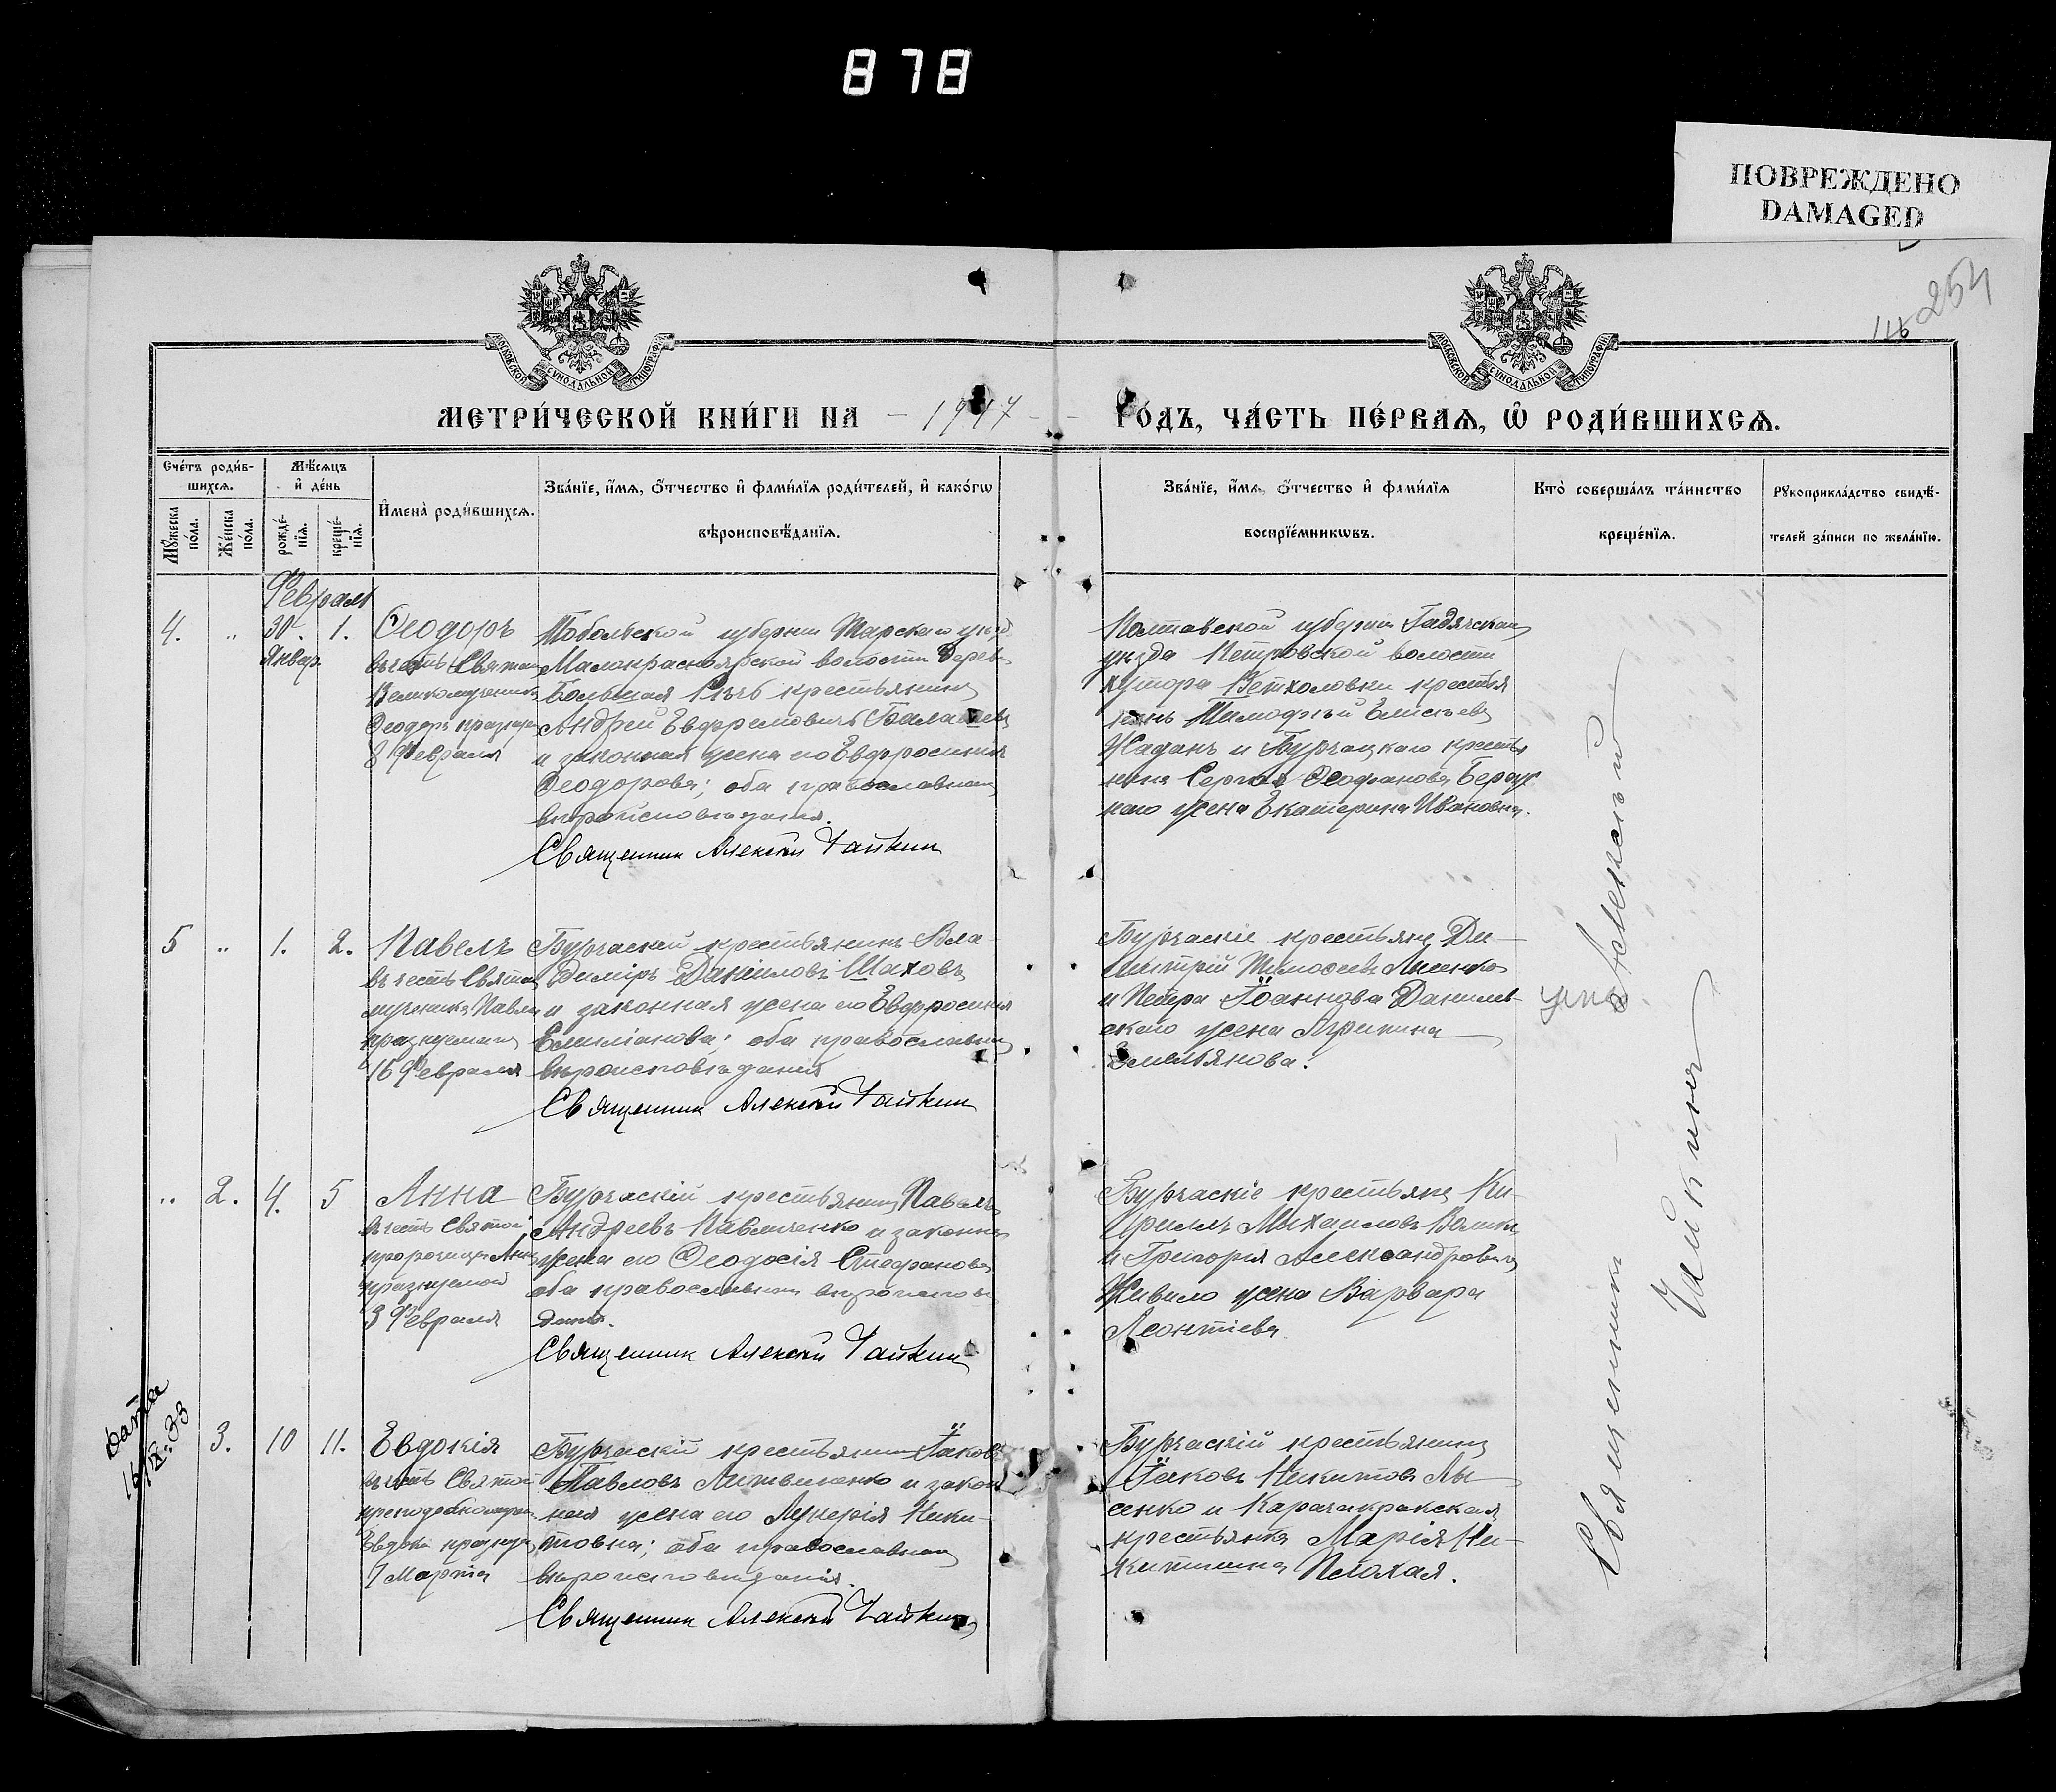 878
ПОВРЕЖДЕНО
DAMAGED
254
МОСКОВСКОЙ СУНОДАЛЬНОЙ ТИПОГРАФІИ
МОСКОВСКОЙ СУНОДАЛЬНОЙ ТИПОГРАФІИ
МЕТРИ́ЧЕСКОЙ КНИ́ГИ НА – 1917 –
ГО́ДЪ, ЧА́СТЬ ПЕ́РВАѦ, Ѡ҆ РОДИ́ВШИХСѦ.
Сче́тъ роди́в-
шихсѧ.
Мѣ́сѧцъ
и҆ де́нь
И҆мена̀ роди́вшихсѧ.
Зва́нїе, и҆́мѧ, ѻ҆́тчество и҆ фами́лїѧ роди́телей, и҆ како́гѡ
вѣроисповѣ́данїѧ.
Мꙋ́жеска
по́ла.
Же́нска
по́ла.
рожде́-
нїѧ.
креще́-
нїѧ.
Зва́нїе, и҆́мѧ, ѻ҆́тчество и҆ фами́лїѧ
воспрїе́мникѡвъ.
Кто̀ соверша́лъ та́инство
креще́нїѧ.
Рꙋкоприкла́дство свидѣ́-
телей за́писи по жела́нїю.
Февраль
4. " 30. 1. Ѳеодоръ
Январ
въ честь Святаго
Великомученика
Ѳеодора празнуем
8 Февраля
Тобольской губернии Тарскаго уезд
Малокрасноярской волости Дерев
Большая Речь крестьянинъ
Андрей Евфремовичъ
и законная жена его Евфросиния
Ѳеодорова; оба православнаго
вероисповедания.
Священник Алексей Чайкин
Полтавской губернии Гадячскаго
уезда Петровской волости
хутора крестья
нинъ Тимофей Елисеевъ
Жаданъ и Бурчацкаго крестья
нина Сергея Ѳеофанова
наго жена Екатерина Ивановна.
5 " 1. 2. Павелъ
въ честь Святаго
мученика Павла
празнуемаго
16 Февраля
Бурчаскій крестьянинъ Вла
диміръ Даніиловъ Шаховъ
и законная жена его Евфросинія
Емиліанова; оба православнаго
вероисповеданія
Священник Алексей Чайкин
Бурчаскіе крестьяне Ди-
митрій Тимоѳеевъ Лисенко
и Петра Іоаннова Данилев-
скаго жена Агрипина
Емельянова.
" 2. 4. 5 Анна
въ честь Святой
пророчицы Анны
празнуемой
3 Февраля
Бурчаскій крестьянинъ Павелъ
Андреевъ Павличенко и законна
жена его Ѳеодосія Стефанова
оба православнаго вероиспове
данія.
Священник Алексей Чайкин
Бурчаскіе крестьяне Ки-
риллъ Михаиловъ
и Григорія Александровича
Живило жена Варвара
Леонтіева
Дана
3. 10 11. Евдокія
въ честь Святой
преподобномучен
Евдокіи празнуем
1 Марта
Бурчаскій крестьянинъ Іаковъ
Павловъ Литвиненко и закон
ная жена его Лукерія Ники-
товна; оба православнаго
вероисповеданія.
Священник Алексей Чайкин
Бурчаскій крестьянинъ
Іаковъ Никитовъ Лы-
сенко и Карачакракская
крестьянка Марія Ни-
китишна Плохая.
Священникъ – Алексей
Чайкинъ